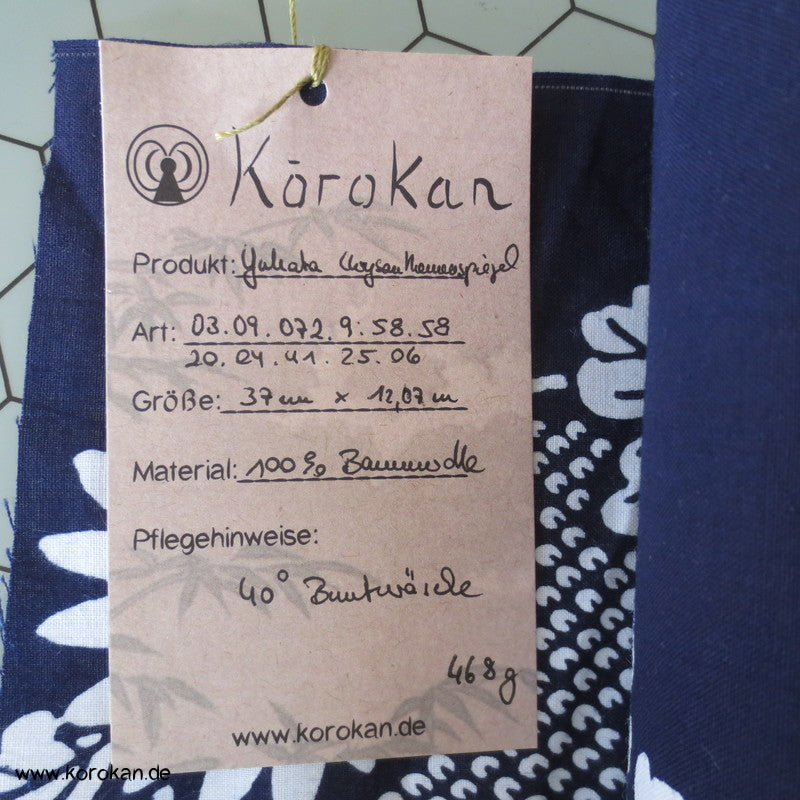 Kōrokan
Produkt: Yukata Chrysanthemenspiegel
Art: 03.09.072.9.58.58
20.04.41.25.06
Größe: 37cm x 12,07m
Material: 100% Baumwolle
Pflegehinweise:
40° Buntwäsche
468g
www.korokan.de
www.korokan.de